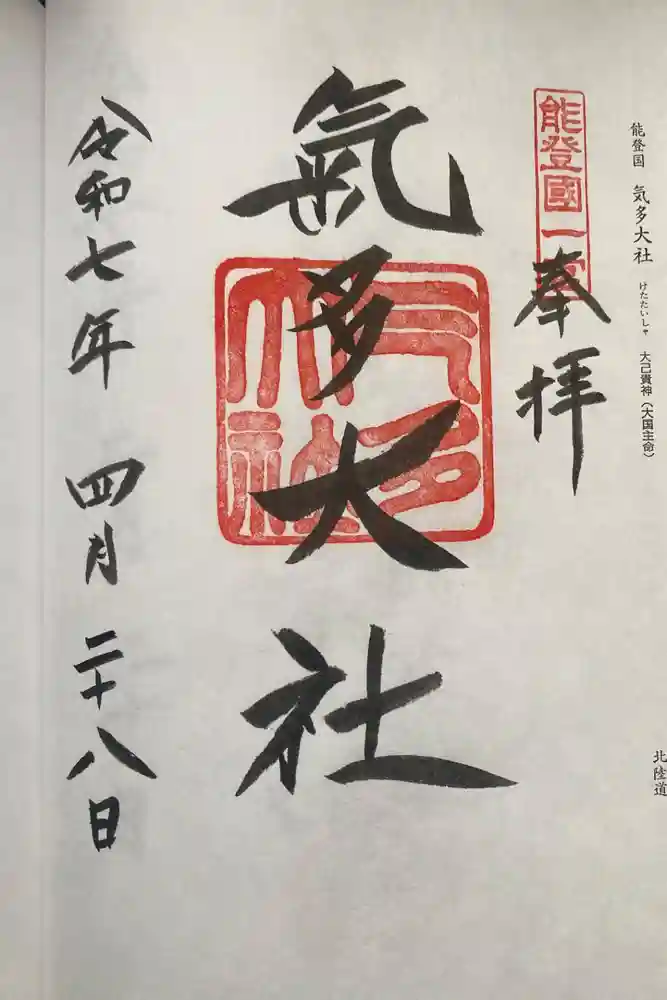 能登国 気多大社 けたたいしゃ 大己貴神(大国主命)
北陸道
能登國一宮
奉拝
氣多大社
气多大社
令和七年 四月 二十八日